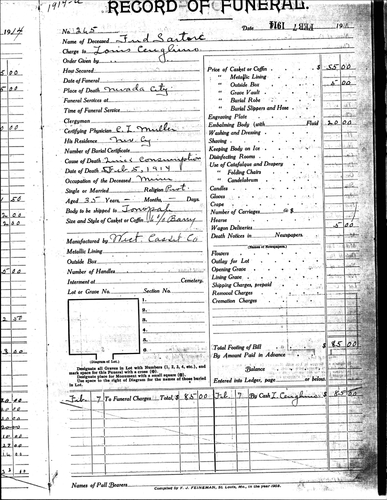 1914
RECORD OF FUNERAL.
No. 265
Date FEB 7 1914 191
Name of Deceased Fred Sartore
Charge to Louis Ceuglino
Order Given by
How Secured
Date of Funeral
Place of Death Nevada City
Funeral Services at
Time of Funeral Service
Clergyman
Certifying Physician C. I. Muller
His Residence Nev. Cy
Number of Burial Certificate
Cause of Death Consumption
Date of Death Feb 5, 1914
Occupation of the Deceased Miner
Single or Married Religion Prot.
Aged 35 Years, – Months, – Days.
Body to be shipped to Tonopah
Size and Style of Casket or Coffin
Manufactured by West. Casket Co
Metallic Lining
Outside Box
Number of Handles
Interment at Cemetery.
Lot or Grave No. Section No.
1.
2.
3.
4.
5.
6.
(Diagram of Lot.)
Designate all Graves in Lot with Numbers (1, 2, 3, 4, etc.), and
mark space for this Funeral with a cross (⊗).
Designate place for Monument with a small square (□).
Use space to the right of Diagram for the names of those buried
in Lot.
Price of Casket or Coffin $ 55 00
" Metallic Lining
" Outside Box 5 00
" Grave Vault
" Burial Robe
" Burial Slippers and Hose
Engraving Plate
Embalming Body (with Fluid) 20 00
Washing and Dressing
Shaving
Keeping Body on Ice
Disinfecting Rooms
Use of Catafalque and Drapery
" Folding Chairs
" Candelabrum
Candles
Gloves
Crape
Number of Carriages @ $
Hearse
Wagon Deliveries 5 00
Death Notices in Newspapers
(Names of Newspapers)
Flowers
Outlay for Lot
Opening Grave
Lining Grave
Shipping Charges, prepaid
Removal Charges
Cremation Charges
Total Footing of Bill $ 85 00
By Amount Paid in Advance
Balance
Entered into Ledger, page or below.
Feb 7 To Funeral Charges Total, $ 85 00 Feb 7 By Cash $ 85 00
Names of Pall Bearers
Compiled by F. J. FEINEMAN, St. Louis, Mo., in the year 1909.